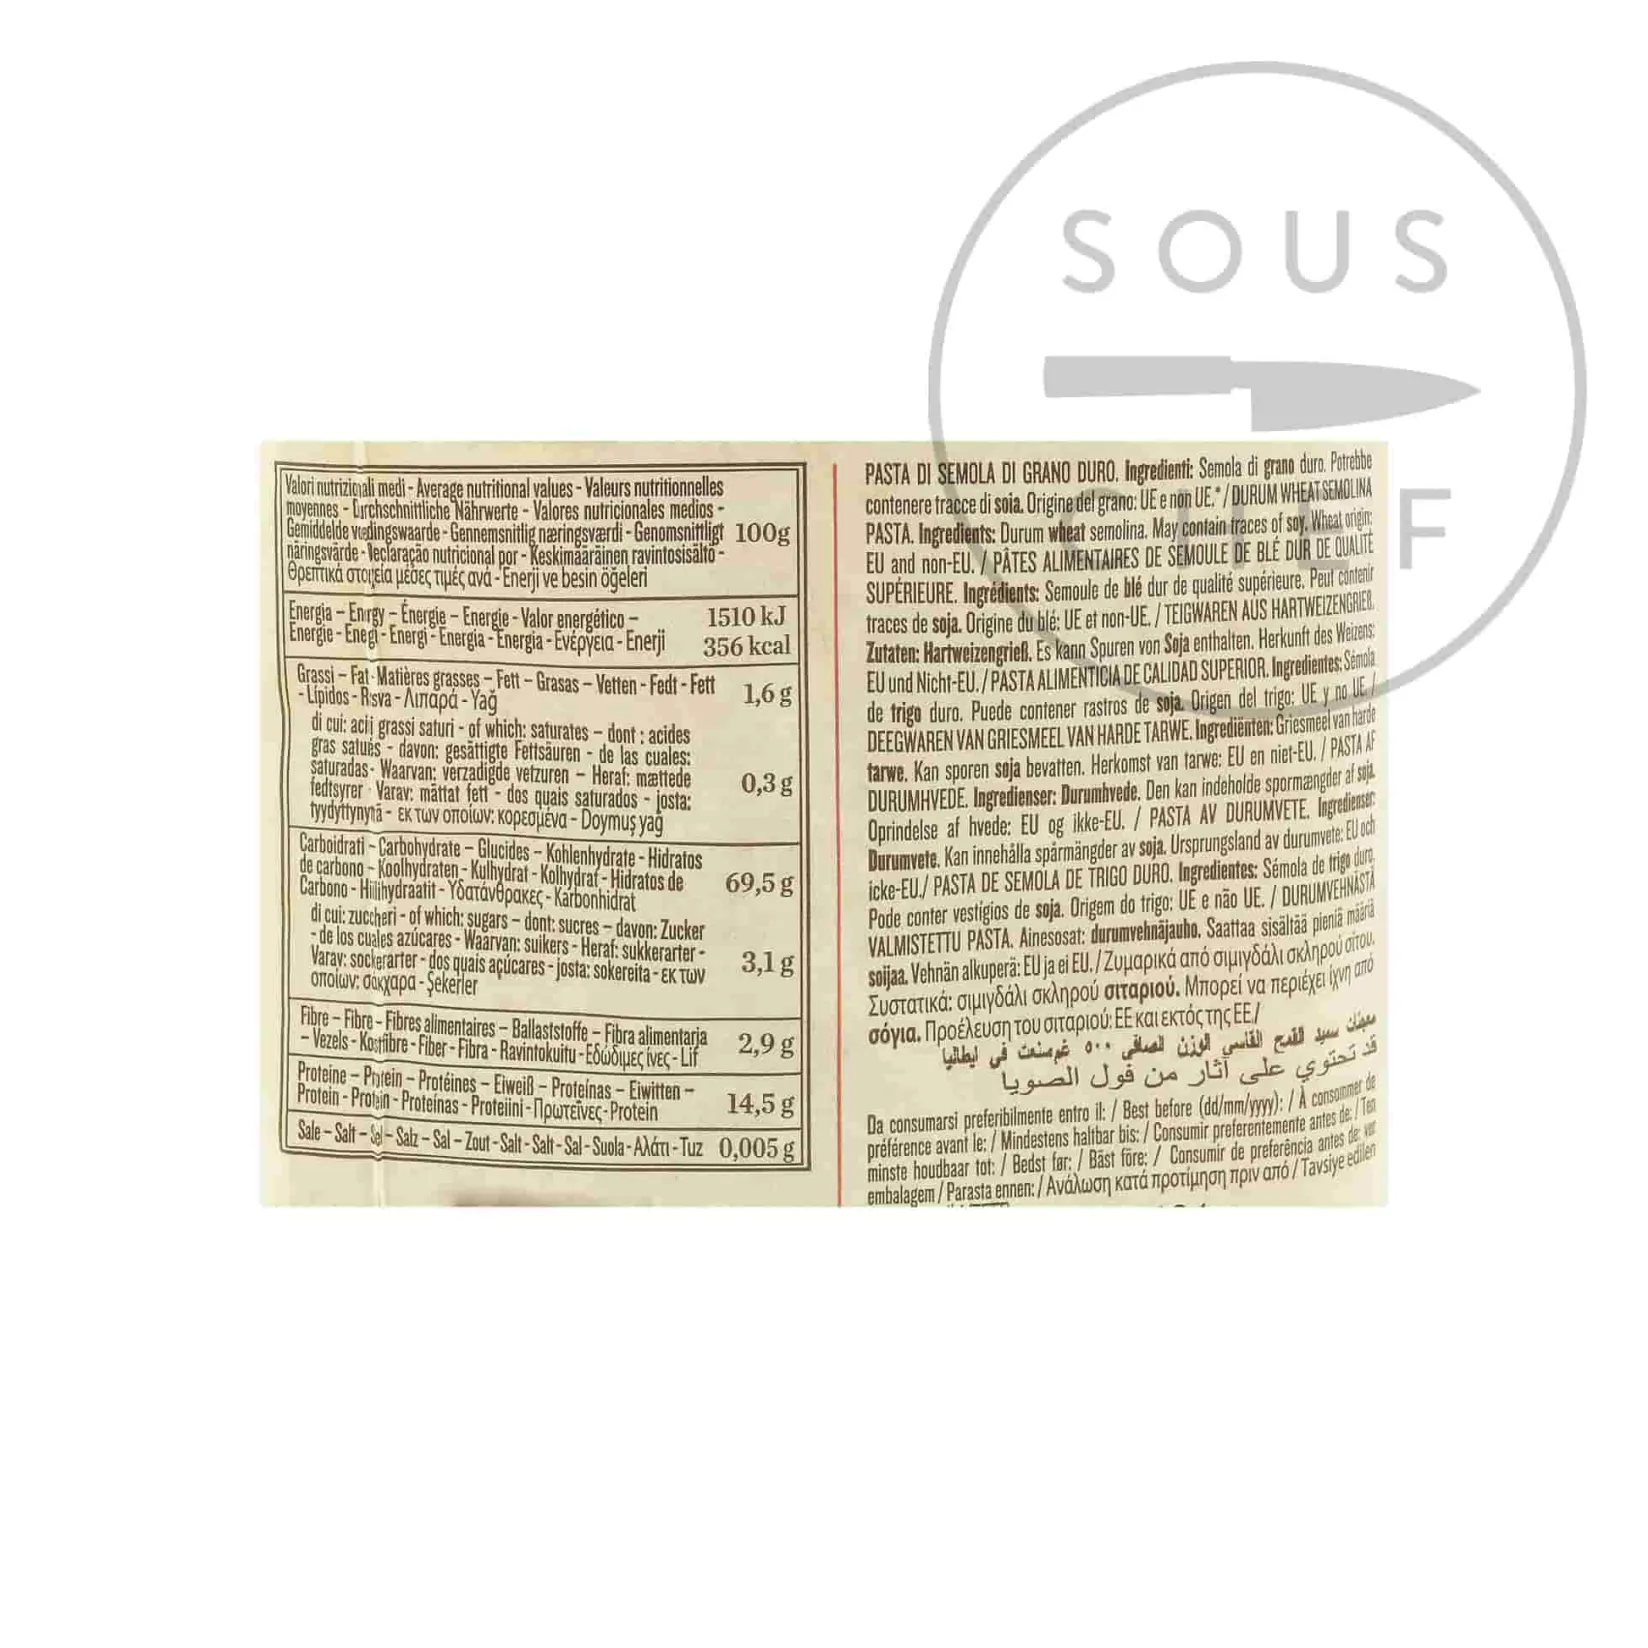 SOUS
CHEF
Valori nutrizionali medi - Average nutritional values - Valeurs nutritionnelles
moyennes - Durchschnittliche Nährwerte - Valores nutricionales medios -
Gemiddelde voedingswaarde - Gennemsnitlig næringsværdi - Genomsnittligt 100g
näringsvärde - Declaração nutricional por - Keskimääräinen ravintosisältö -
Θρεπτικά στοιχεία μέσες τιμές ανά - Enerji ve besin öğeleri
Energia – Energy – Énergie – Energie - Valor energético – 1510 kJ
Energie - Energi - Energi - Energia - Energia - Ενέργεια - Enerji 356 kcal
Grassi – Fat - Matières grasses – Fett – Grasas – Vetten - Fedt - Fett 1,6 g
- Lípidos - Rasva - Λιπαρά - Yağ
di cui: acidi grassi saturi - of which: saturates – dont : acides
gras saturés - davon: gesättigte Fettsäuren - de las cuales:
saturadas - Waarvan: verzadigde vetzuren – Heraf: mættede 0,3 g
fedtsyrer - Varav: mättat fett - dos quais saturados - josta:
tyydyttynyttä - εκ των οποίων: κορεσμένα - Doymuş yağ
Carboidrati – Carbohydrate – Glucides – Kohlenhydrate - Hidratos
de carbono - Koolhydraten - Kulhydrat - Kolhydrat - Hidratos de 69,5 g
Carbono - Hiilihydraatit - Υδατάνθρακες - Karbonhidrat
di cui: zuccheri - of which: sugars – dont: sucres – davon: Zucker
- de los cuales azúcares - Waarvan: suikers - Heraf: sukkerarter - 3,1 g
Varav: sockerarter - dos quais açúcares - josta: sokereita - εκ των
οποίων: σάκχαρα - Şekerler
Fibre – Fibre – Fibres alimentaires – Ballaststoffe – Fibra alimentaria 2,9 g
– Vezels - Kostfibre - Fiber - Fibra - Ravintokuitu - Εδώδιμες ίνες - Lif
Proteine – Protein – Protéines – Eiweiß – Proteínas – Eiwitten – 14,5 g
Protein - Protein - Proteínas - Proteiini - Πρωτεΐνες - Protein
Sale – Salt – Sel – Salz – Sal – Zout - Salt - Salt - Sal - Suola - Αλάτι - Tuz 0,005 g
PASTA DI SEMOLA DI GRANO DURO. Ingredienti: Semola di grano duro. Potrebbe
contenere tracce di soia. Origine del grano: UE e non UE.* / DURUM WHEAT SEMOLINA
PASTA. Ingredients: Durum wheat semolina. May contain traces of soy. Wheat origin:
EU and non-EU. / PÂTES ALIMENTAIRES DE SEMOULE DE BLÉ DUR DE QUALITÉ
SUPÉRIEURE. Ingrédients: Semoule de blé dur de qualité supérieure. Peut contenir
traces de soja. Origine du blé: UE et non-UE. / TEIGWAREN AUS HARTWEIZENGRIEß.
Zutaten: Hartweizengrieß. Es kann Spuren von Soja enthalten. Herkunft des Weizens:
EU und Nicht-EU. / PASTA ALIMENTICIA DE CALIDAD SUPERIOR. Ingredientes: Sémola
de trigo duro. Puede contener rastros de soja. Origen del trigo: UE y no UE. /
DEEGWAREN VAN GRIESMEEL VAN HARDE TARWE. Ingrediënten: Griesmeel van harde
tarwe. Kan sporen soja bevatten. Herkomst van tarwe: EU en niet-EU. / PASTA AF
DURUMHVEDE. Ingredienser: Durumhvede. Den kan indeholde spormængder af soja.
Oprindelse af hvede: EU og ikke-EU. / PASTA AV DURUMVETE. Ingredienser:
Durumvete. Kan innehålla spårmängder av soja. Ursprungsland av durumvete: EU och
icke-EU./ PASTA DE SEMOLA DE TRIGO DURO. Ingredientes: Sémola de trigo duro.
Pode conter vestígios de soja. Origem do trigo: UE e não UE. / DURUMVEHNÄSTÄ
VALMISTETTU PASTA. Ainesosat: durumvehnäjauho. Saattaa sisältää pieniä määriä
soijaa. Vehnän alkuperä: EU ja ei EU. / Ζυμαρικά από σιμιγδάλι σκληρού σίτου.
Συστατικά: σιμιγδάλι σκληρού σιταριού. Μπορεί να περιέχει ίχνη από
σόγια. Προέλευση του σιταριού: ΕΕ και εκτός της ΕΕ./
معينات سميد القمح القاسي الوزن الصافي ٥٠٠ غم صنعت في ايطاليا
قد تحتوي على آثار من فول الصويا
Da consumarsi preferibilmente entro il: / Best before (dd/mm/yyyy): / À consommer de
préférence avant le: / Mindestens haltbar bis: / Consumir preferentemente antes de: / Ten
minste houdbaar tot: / Bedst før: / Bäst före: / Consumir de preferência antes de: ver
embalagem / Parasta ennen: / Ανάλωση κατά προτίμηση πριν από / Tavsiye edilen